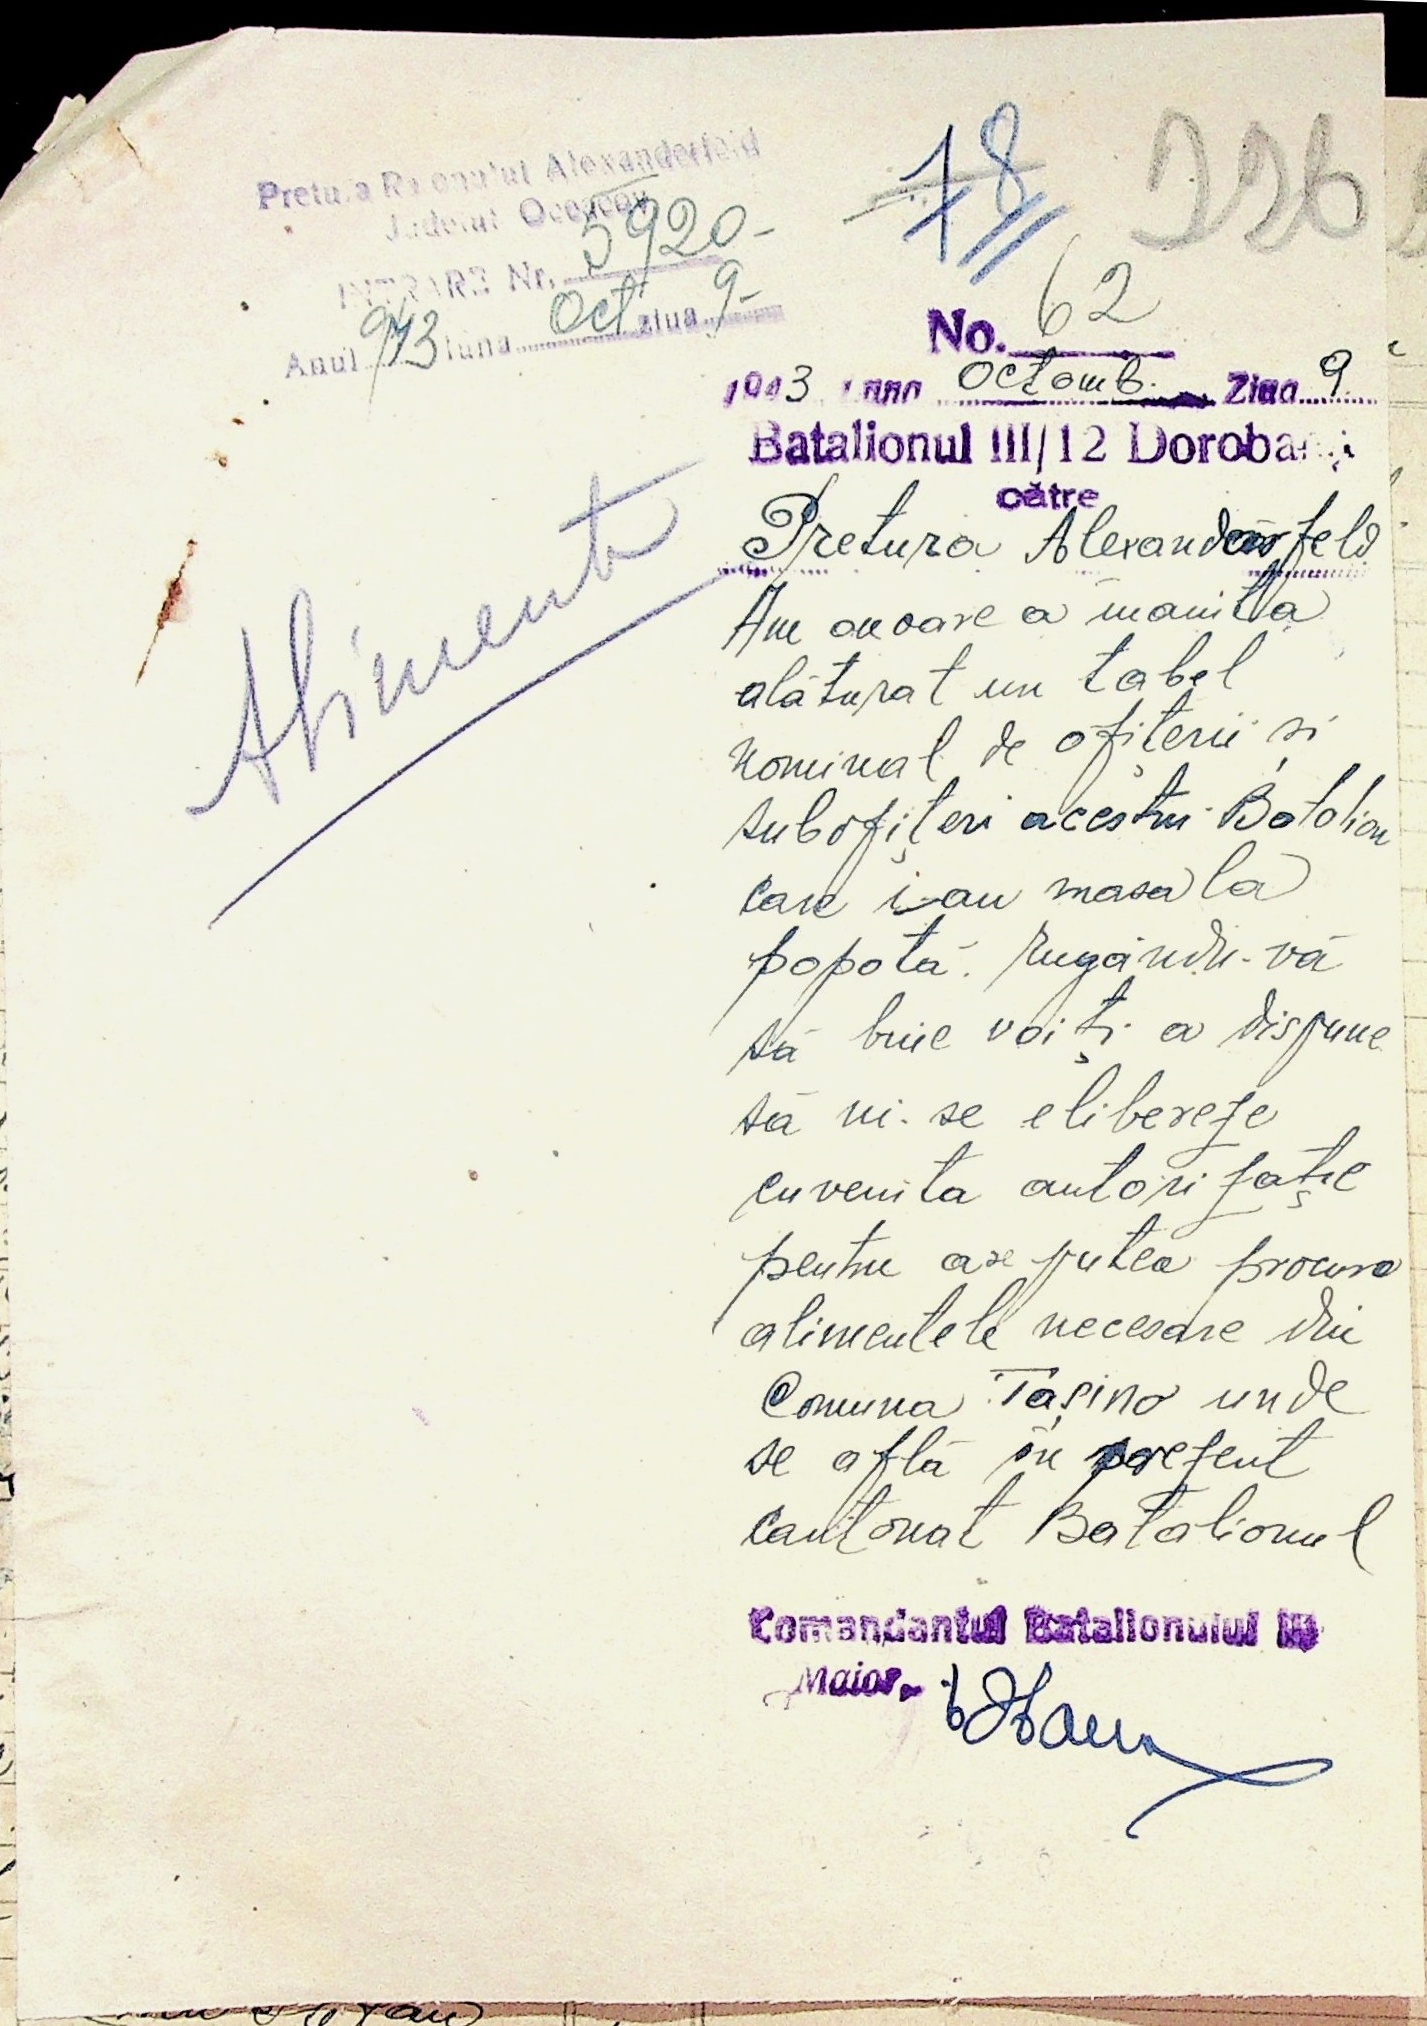 Pretura Raionului Alexanderfeld
Judetul Oceacov
INTRARE Nr. 5920-
Anul 943 luna Oct ziua 9-
78
226
No. 62
1943 Luna Octomb. Ziua 9
Batalionul III/12 Dorobanți
către
Pretura Alexanderfeld
Alimente
Am onoare a înainta
alăturat un tabel
nominal de ofițerii și
subofițeri acestui Batalion
care i-au masa la
popotă. rugându-vă
să bine voiți a dispune
să ni-se elibereze
cuvenita autorizație
pentru a se putea procura
alimentele necesare din
Comuna Tașino unde
se află în prezent
cantonat Batalionul
Comandantul Batalionului III
Maior,